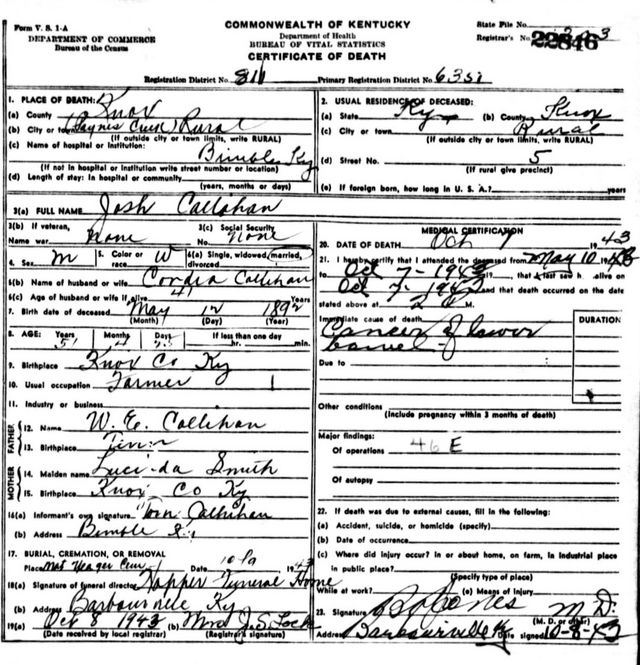 Form V. S. 1-A
DEPARTMENT OF COMMERCE
Bureau of the Census
COMMONWEALTH OF KENTUCKY
Department of Health
BUREAU OF VITAL STATISTICS
CERTIFICATE OF DEATH
State File No.
Registrar's No.
22846
Registration District No. 811 Primary Registration District No. 6351
1. PLACE OF DEATH:
(a) County Knox
(b) City or town Rural
(If outside city or town limits, write RURAL)
(c) Name of hospital or institution:
Bimble Ky
(If not in hospital or institution write street number or location)
(d) Length of stay: In hospital or community
(years, months or days)
2. USUAL RESIDENCE OF DECEASED:
(a) State Ky (b) County Knox
(c) City or town Rural
(If outside city or town limits, write RURAL)
(d) Street No. 5
(If rural give precinct)
(e) If foreign born, how long in U. S. A.? years
3(a) FULL NAME Josh Callahan
3(b) If veteran, Name war none
3(c) Social Security No. none
4. Sex m 5. Color or race W 6(a) Single, widowed, married, divorced
6(b) Name of husband or wife Cordia Callihan
6(c) Age of husband or wife if alive 41 Years
7. Birth date of deceased May 12 1892
(Month) (Day) (Year)
8. AGE: Years Months Days If less than one day
51 4 hr. min.
9. Birthplace Knox Co Ky
10. Usual occupation Farmer
11. Industry or business
FATHER
12. Name W. E. Callihan
13. Birthplace
MOTHER
14. Maiden name Lucinda Smith
15. Birthplace Knox Co Ky
16(a) Informant's own signature Callihan
(b) Address Bimble Ky
17. BURIAL, CREMATION, OR REMOVAL
Place Yeager Cem Date 1943
18(a) Signature of funeral director Hopper Funeral Home
(b) Address Barbourville Ky
19(a) Oct 8 1943 (b) Mrs J. S. Lock
(Date received by local registrar) (Registrar's signature)
MEDICAL CERTIFICATION
20. DATE OF DEATH Oct 7 1943
21. I hereby certify that I attended the deceased from May 10 1943
to Oct 7-1943 that I last saw h alive on
Oct 7-1943 and that death occurred on the date
stated above at 2 M.
Immediate cause of death
Cancer of lower
bowel
DURATION
Due to
Other conditions
(Include pregnancy within 3 months of death)
Major findings:
Of operations 46 E
Of autopsy
22. If death was due to external causes, fill in the following:
(a) Accident, suicide, or homicide (specify)
(b) Date of occurrence
(c) Where did injury occur? in or about home, on farm, in industrial place
in public place?
(Specify type of place)
While at work? (e) Means of injury
23. Signature Jones M.D.
(M. D. or other)
Address Barbourville Ky Date signed 10-8-43